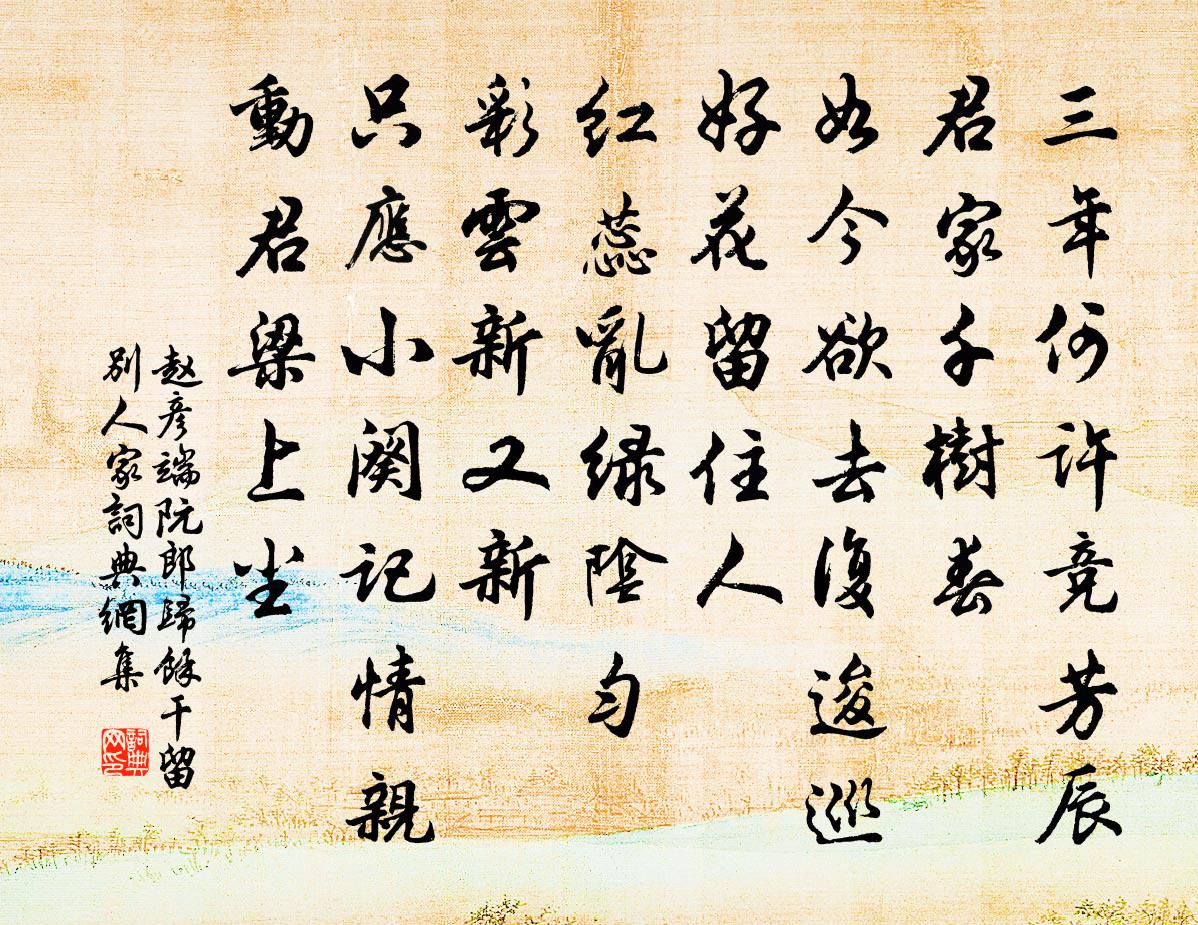 三年何许竞芳辰
君家千樹春
如今欲去復逡巡
好花留住人
红蕊亂绿陰匀
彩雲新又新
只應小阕記情親
動君梁上尘
赵彦端阮郎歸餘干留
別人家詞典網集
詞典網印